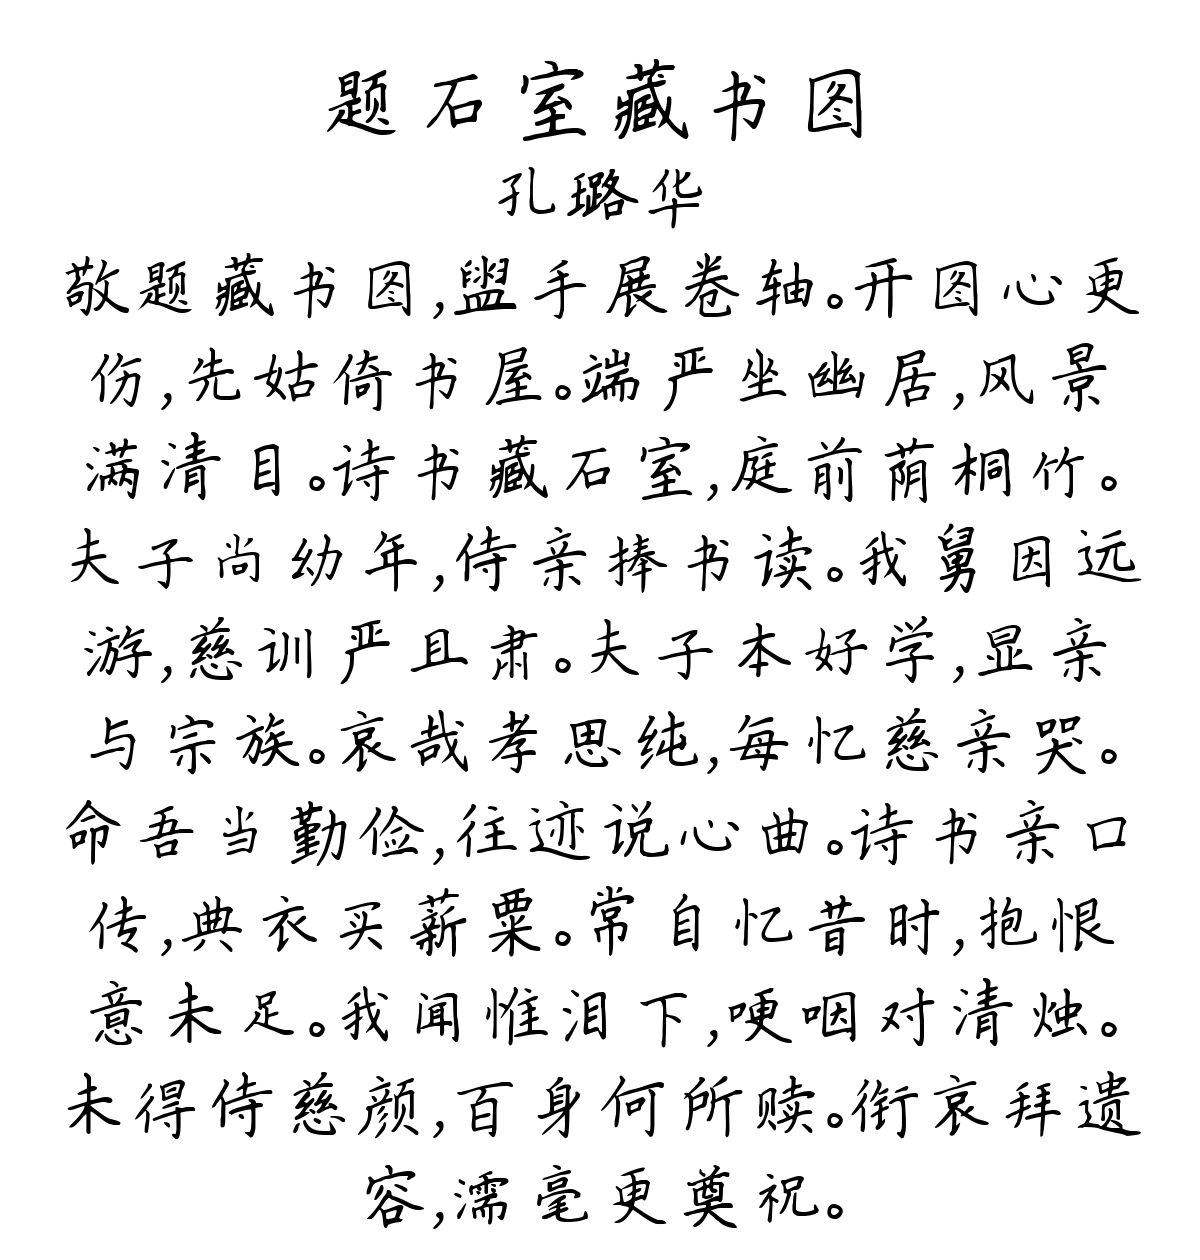 题石室藏书图
孔璐华
敬题藏书图,盥手展卷轴。开图心更
伤,先姑倚书屋。端严坐幽居,风景
满清目。诗书藏石室,庭前荫桐竹。
夫子尚幼年,侍亲捧书读。我舅因远
游,慈训严且肃。夫子本好学,显亲
与宗族。哀哉孝思纯,每忆慈亲哭。
命吾当勤俭,往迹说心曲。诗书亲口
传,典衣买薪粟。常自忆昔时,抱恨
意未足。我闻惟泪下,哽咽对清烛。
未得侍慈颜,百身何所赎。衔哀拜遗
容,濡毫更奠祝。